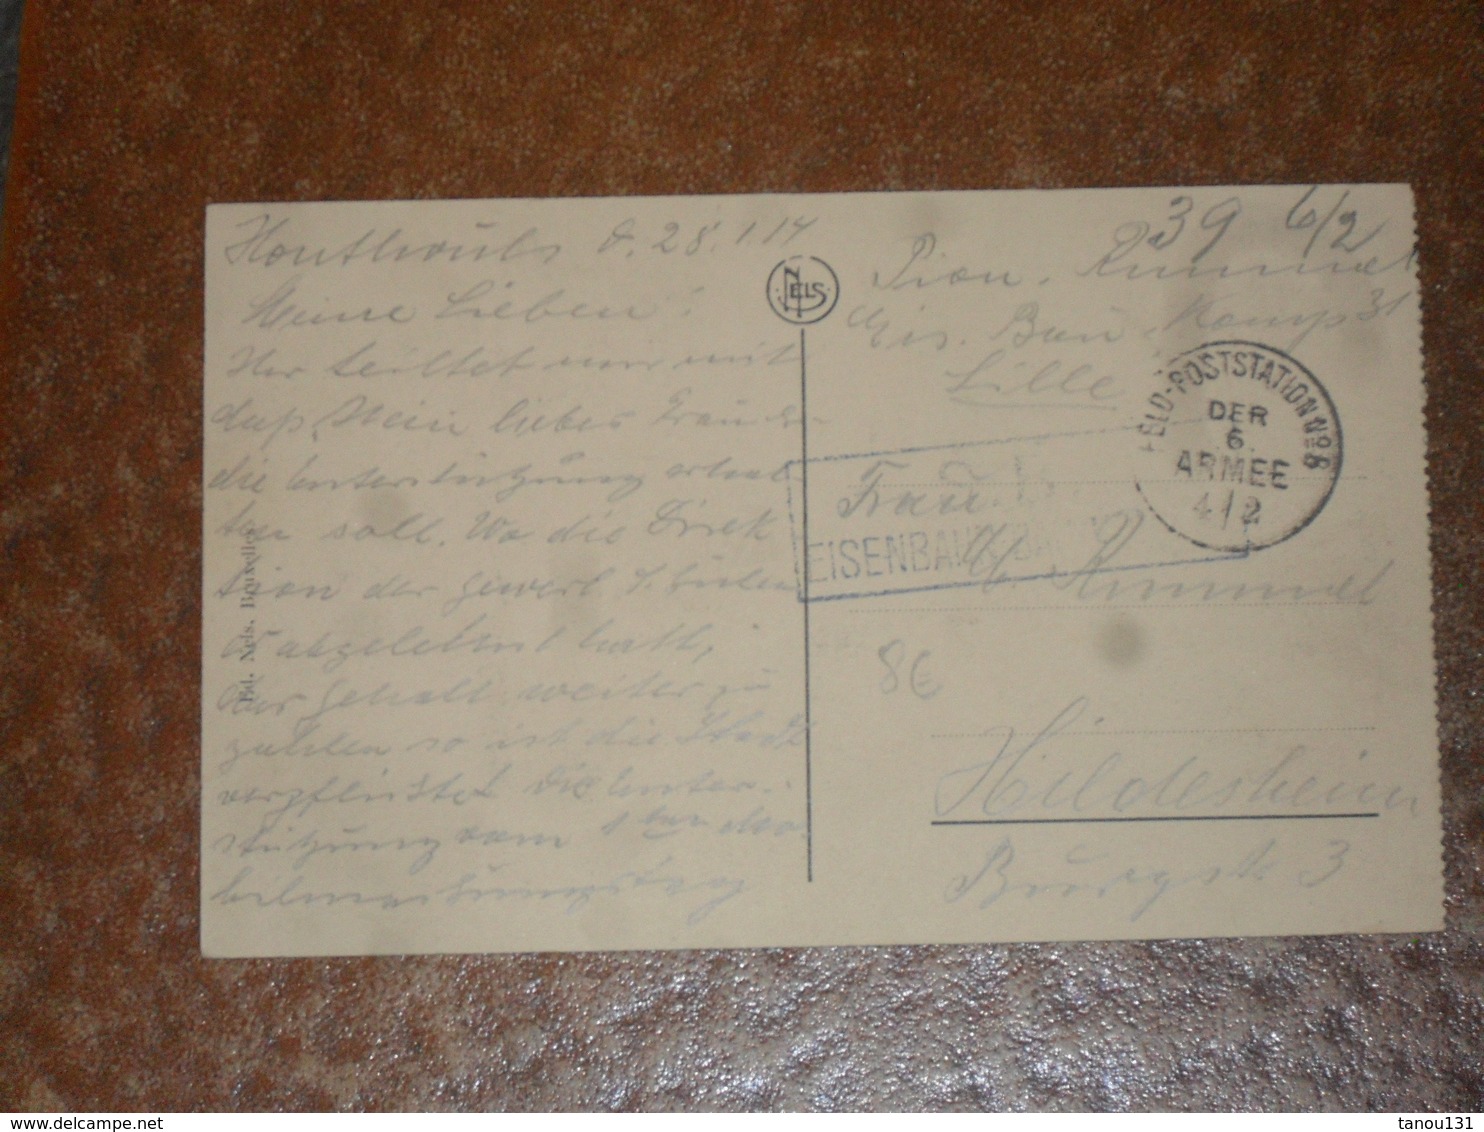 Houthoulst d. 28.1.14
Meine Lieben!
teilt mir mit
daß, Mein liebes
die Unterstützung erhal-
ten soll. Wo die Direk
tion der Gewerbl. Schulen
es abgelehnt hatt,
das Gehalt weiter zu
zahlen so ist die Stadt
verpflichtet die Unter-
stützung vom 1ten Mo-
bilmachungstag
Ed. Nels, Bruxelles
NELS
39 6/2
Pion. Rummel
Eis. Bau Komp 31
Lille
FELD-POSTSTATION No 8
DER
6.
ARMEE
4/2
EISENBAHN
Frau
Rummel
8€
Hildesheim
Burgstr. 3
tanou131